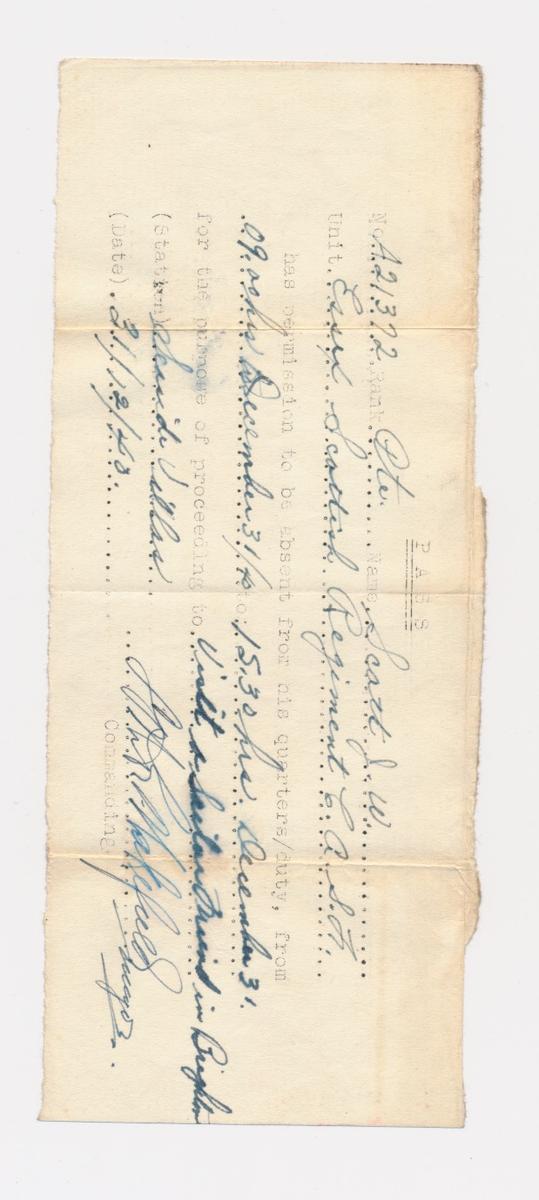 PASS
No. A21372 Rank. Pte. Name. Scott J. W.
Unit. Essex Scottish Regiment C.A.S.F.
has permission to be absent from his quarters/duty, from
09.00 hrs December 31/40 to 15.30 hrs. December 31.
for the purpose of proceeding to Visit a Sailor Friend in Brighton
(Station) Villas
(Date). 31/12/40. Major
Commanding